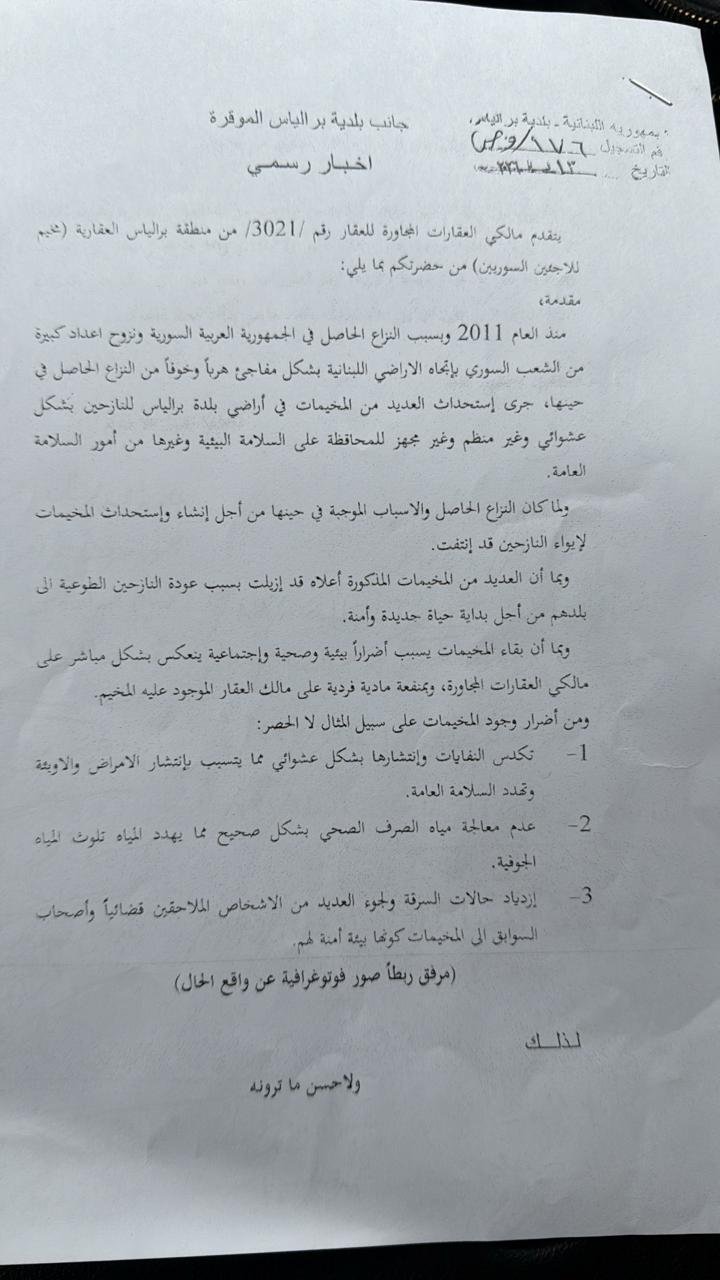 جانب بلدية بر الياس الموقرة
اخبار رسمي
جمهورية اللبنانية - بلدية بر الياس
رقم التسجيل ١٧٦/وص
التاريخ
يتقدم مالكي العقارات المجاورة للعقار رقم /3021/ من منطقة برالياس العقارية (مخيم
للاجئين السوريين) من حضرتكم بما يلي:
مقدمة،
منذ العام 2011 وبسبب النزاع الحاصل في الجمهورية العربية السورية ونزوح اعداد كبيرة
من الشعب السوري بإتجاه الاراضي اللبنانية بشكل مفاجئ هرباً وخوفاً من النزاع الحاصل في
حينها، جرى إستحداث العديد من المخيمات في أراضي بلدة برالياس للنازحين بشكل
عشوائي وغير منظم وغير مجهز للمحافظة على السلامة البيئية وغيرها من أمور السلامة
العامة.
ولما كان النزاع الحاصل والاسباب الموجبة في حينها من أجل إنشاء وإستحداث المخيمات
لإيواء النازحين قد إنتفت.
وبما أن العديد من المخيمات المذكورة أعلاه قد إزيلت بسبب عودة النازحين الطوعية الى
بلدهم من أجل بداية حياة جديدة وأمنة.
وبما أن بقاء المخيمات يسبب أضراراً بيئية وصحية وإجتماعية ينعكس بشكل مباشر على
مالكي العقارات المجاورة، وبمنفعة مادية فردية على مالك العقار الموجود عليه المخيم.
ومن أضرار وجود المخيمات على سبيل المثال لا الحصر:
1- تكدس النفايات وإنتشارها بشكل عشوائي مما يتسبب بإنتشار الامراض والاوبئة
وتهدد السلامة العامة.
2- عدم معالجة مياه الصرف الصحي بشكل صحيح مما يهدد المياه تلوث المياه
الجوفية.
3- إزدياد حالات السرقة ولجوء العديد من الاشخاص الملاحقين قضائياً وأصحاب
السوابق الى المخيمات كونها بيئة أمنة لهم.
(مرفق ربطاً صور فوتوغرافية عن واقع الحال)
لذلك
ولاحسن ما ترونه